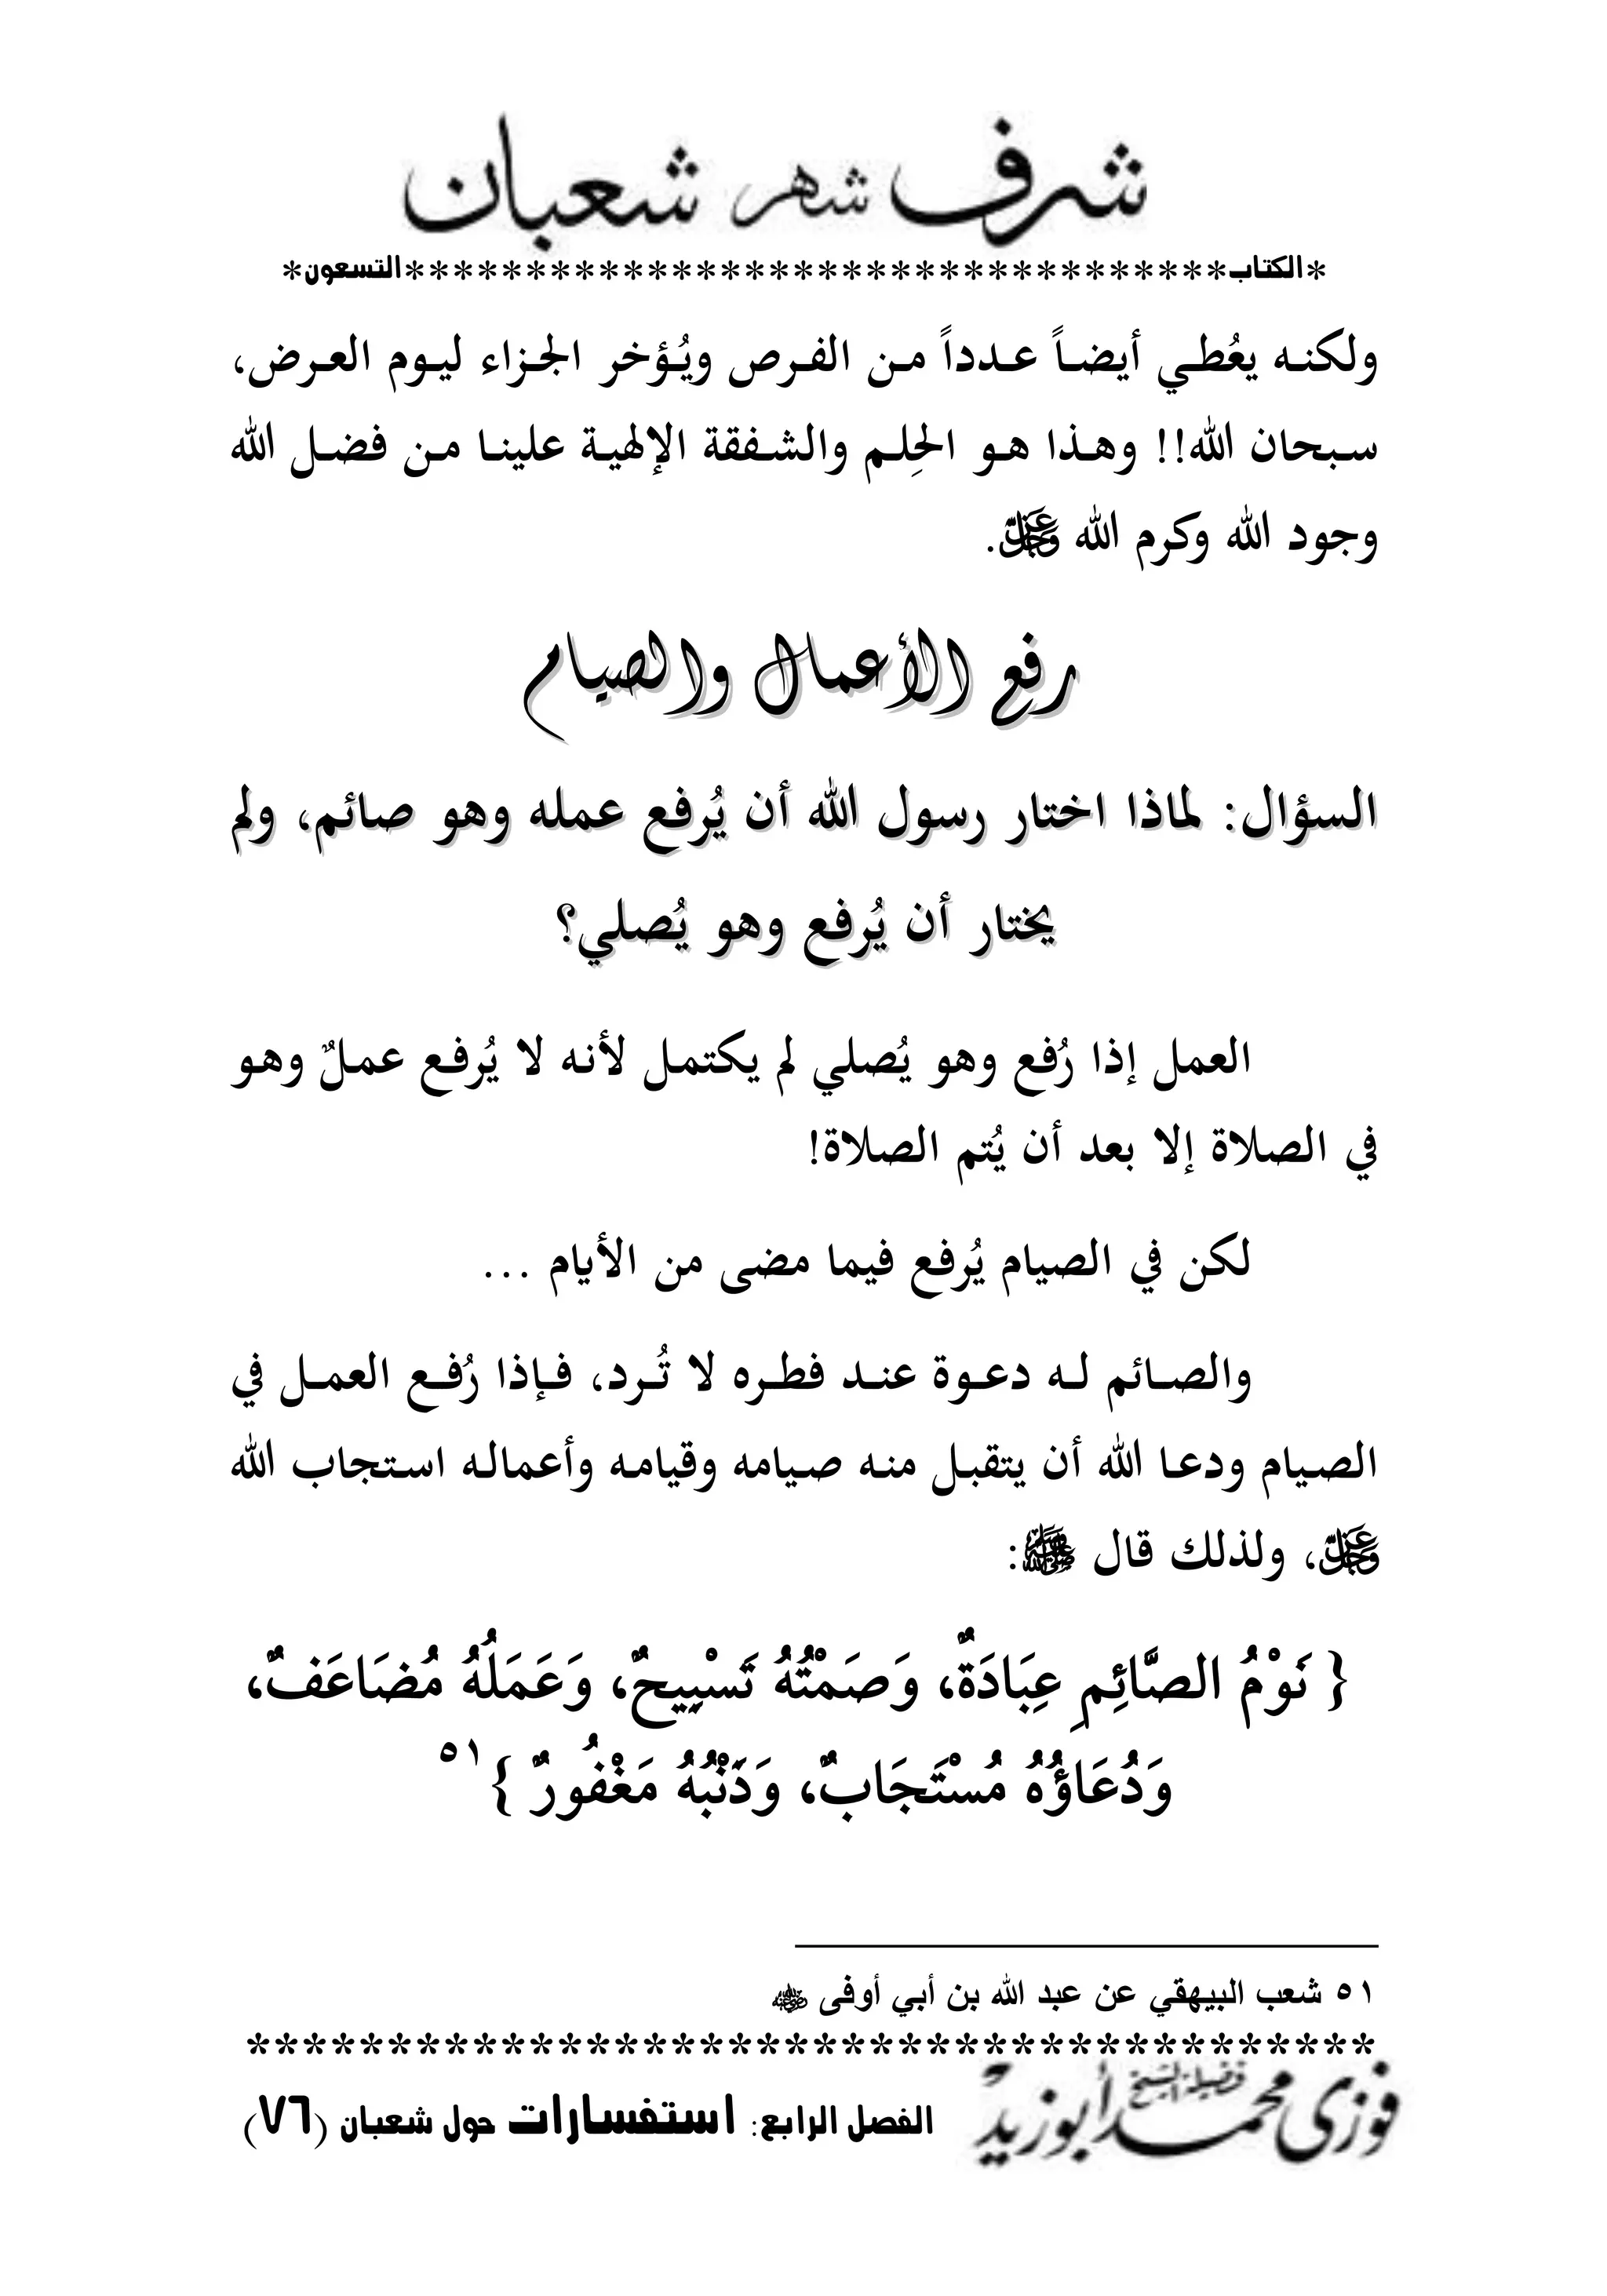 شرف شهر شعبان
*الكتاب**********************************التسعون*
ولكنه يعُطي أيضاً عدداً من الفرص ويُؤخر الجزاء ليوم العرض،
سبحان الله!! وهذا هو الحِلم والشفقة الإلهية علينا من فضل الله
وجود الله وكرم الله عز وجل.
رفع الأعمال والصيام
السؤال: لماذا اختار رسول الله أن يُرفع عمله وهو صائم، ولم
يختار أن يُرفع وهو يُصلي؟
العمل إذا رُفع وهو يُصلي لم يكتمل لأنه لا يُرفع عملٌ وهو
في الصلاة إلا بعد أن يُتم الصلاة!
لكن في الصيام يُرفع فيما مضى من الأيام ...
والصائم له دعوة عند فطره لا تُرد، فإذا رُفع العمل في
الصيام ودعا الله أن يتقبل منه صيامه وقيامه وأعماله استجاب الله
عز وجل، ولذلك قال ﷺ:
{ نَوْمُ الصَّائِمِ عِبَادَةٌ، وَصَمْتُهُ تَسْبِيحٌ، وَعَمَلُهُ مُضَاعَفٌ،
وَدُعَاؤُهُ مُسْتَجَابٌ، وَذَنْبُهُ مَغْفُورٌ }٥١
٥١ شعب البيهقي عن عبد الله بن أبي أوفى رضي الله عنه
****************************************
فضيلة الشيخ فوزى محمد أبوزيد
الفصل الرابع: استفسارات حول شعبان (٧٦)